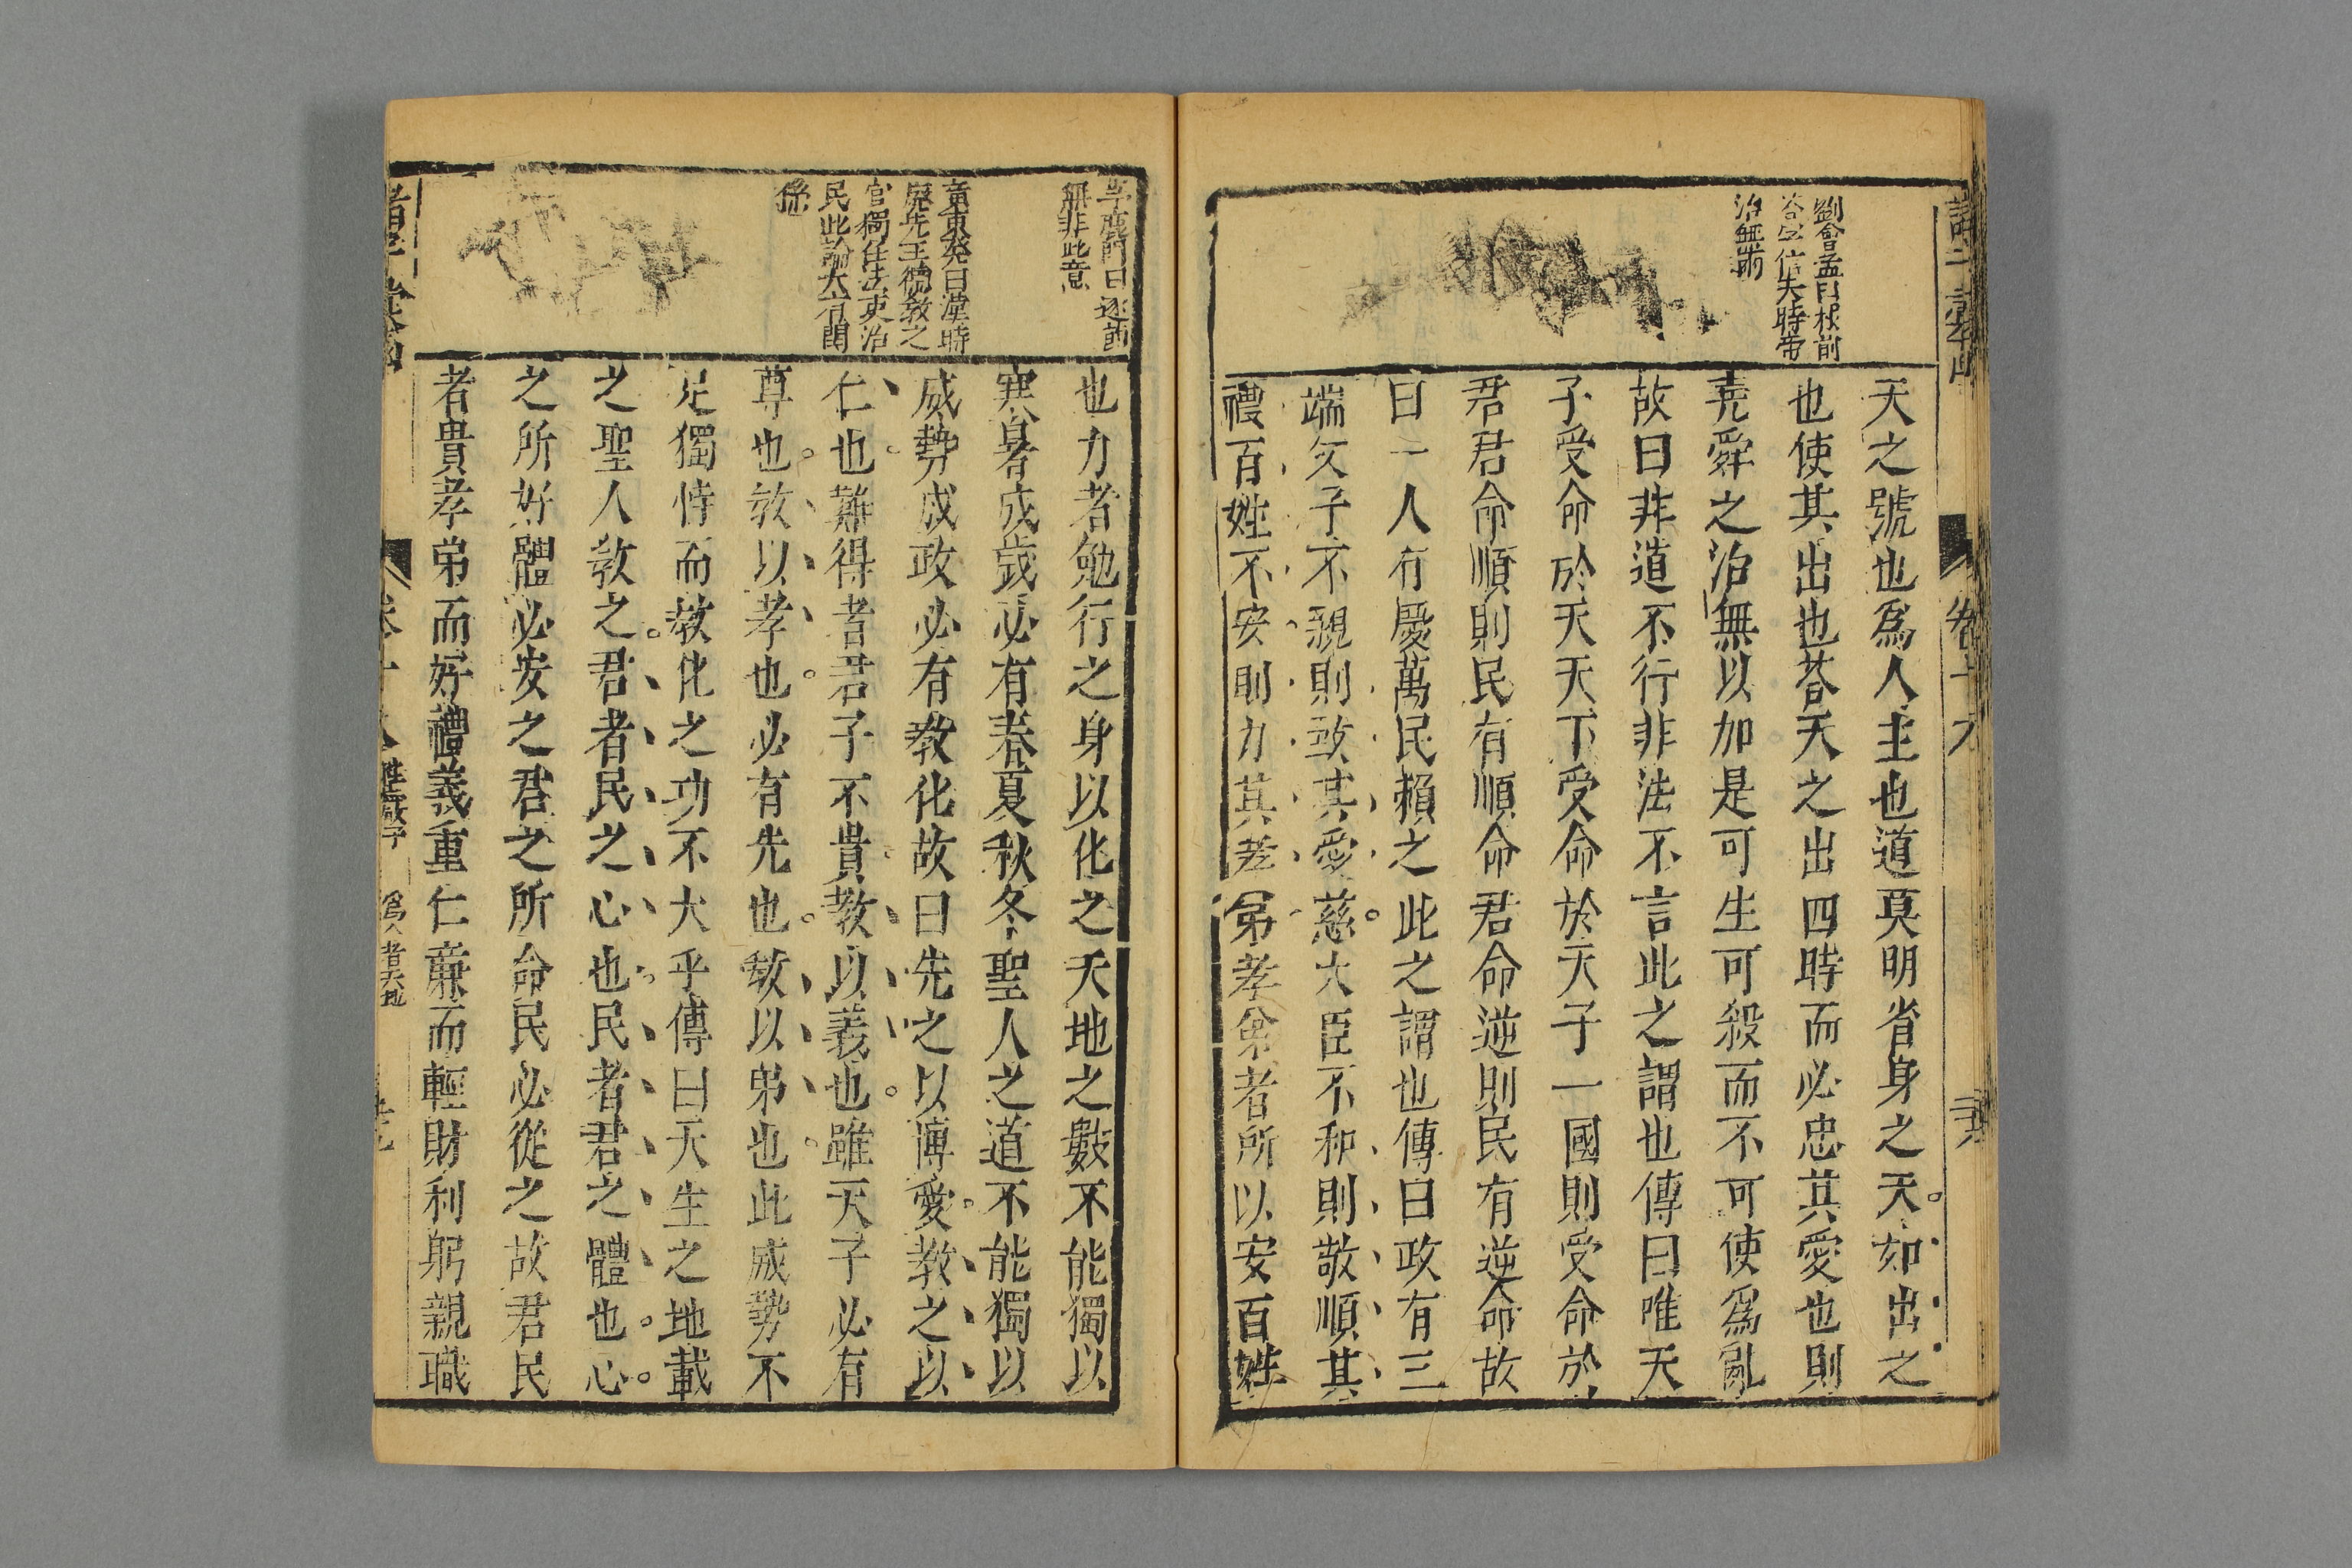 劉會孟曰根前
治無前
天之號也爲人主也道莫明省身之天如出之
也使其出也荅天之出四時而必忠其愛也則
堯舜之治無以加是可生可殺而不可使爲亂
故曰非道不行非法不言此之謂也傳曰唯天
子受命於天天下受命於天子一國則受命於
君君命順則民有順命君命逆則民有逆命故
曰一人有慶萬民賴之此之謂也傳曰政有三
端父子不親則致其愛慈大臣不和則敬順其
禮百姓不安則力其孝弟孝弟者所以安百姓
無非此意
章東發曰漢時
廢先王德敎之
官獨任法吏治
民此論大有關
係
也力者勉行之身以化之天地之數不能獨以
寒暑成歲必有春夏秋冬聖人之道不能獨以
威勢成政必有敎化故曰先之以博愛教之以
仁也難得者君子不貴教以義也雖天子必有
尊也敎以孝也必有先也敎以弟也此威勢不
足獨恃而敎化之功不大乎傳曰天生之地載
之聖人敎之君者民之心也民者君之體也心
之所好體必安之君之所命民必從之故君民
者貴孝弟而好禮義重仁亷而輕財利躬親職